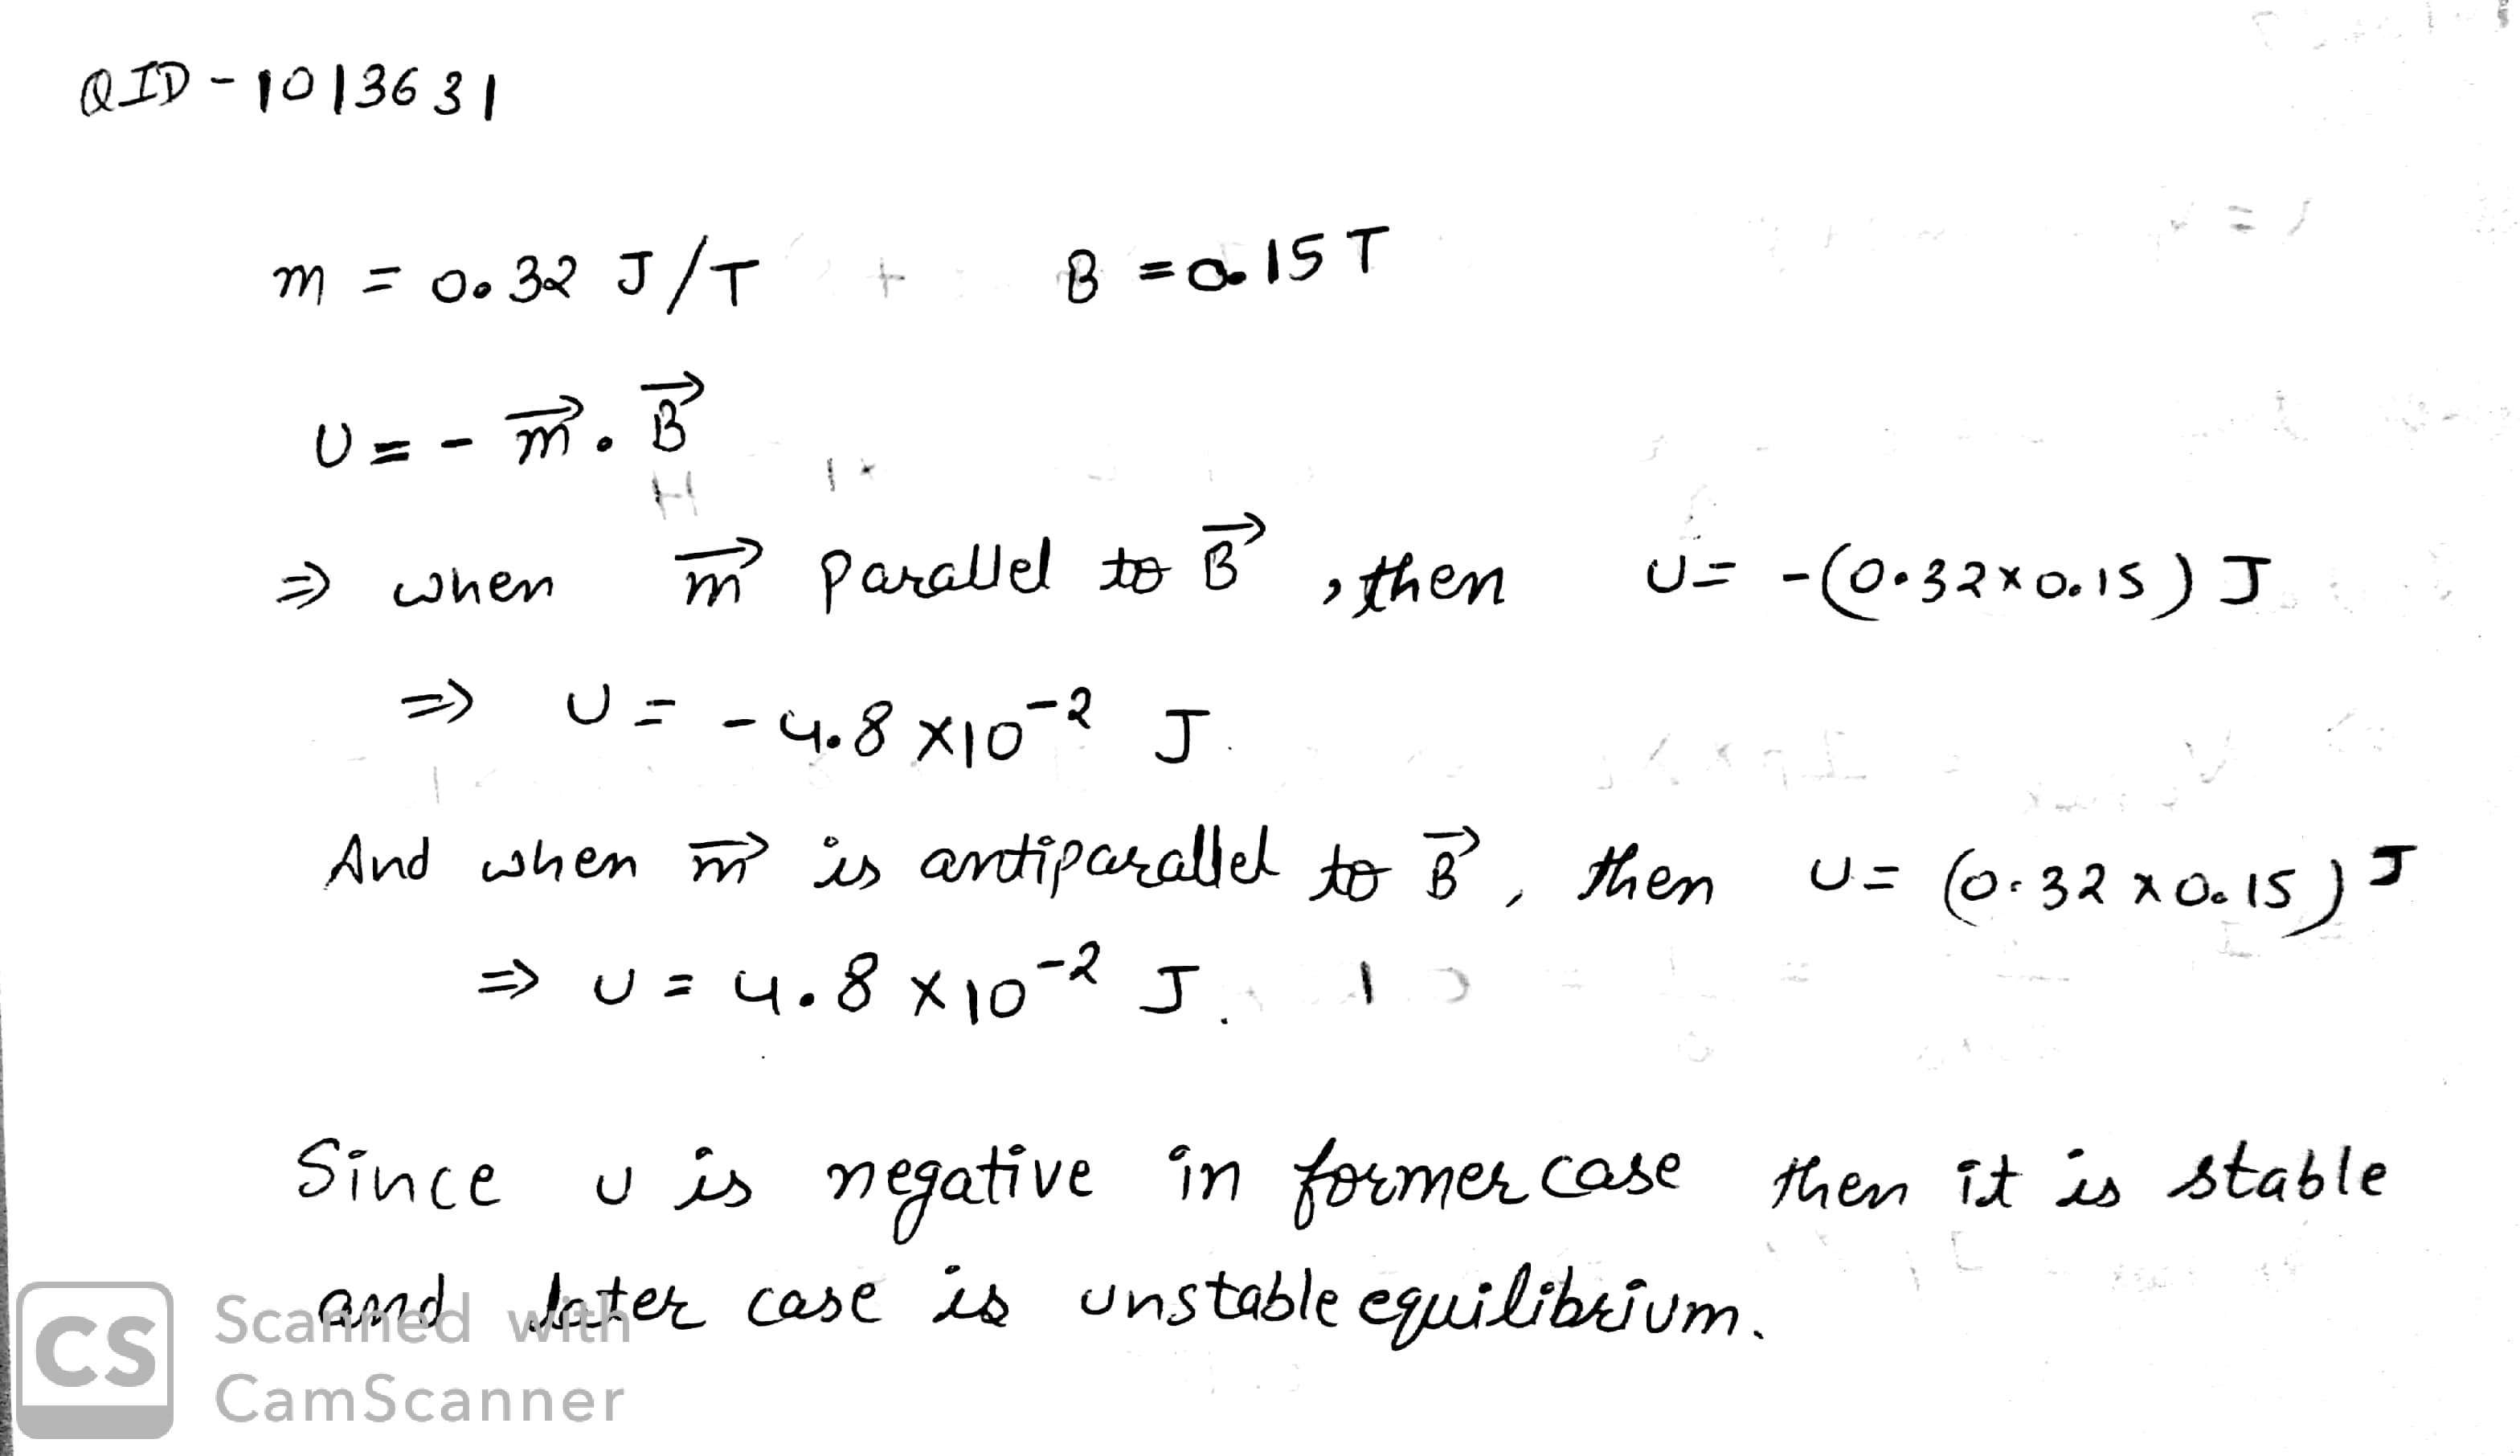 QID - 1013631
m = 0.32 J/T B = 0.15 T
U = - m⃗ . B⃗
⇒ when m⃗ parallel to B⃗ , then U = -(0.32×0.15) J
⇒ U = -4.8 ×10⁻² J.
And when m⃗ is antiparallel to B⃗ , then U = (0.32 × 0.15) J
⇒ U = 4.8 ×10⁻² J.
Since U is negative in former case then it is stable
and later case is unstable equilibrium.
CS Scanned with
CamScanner